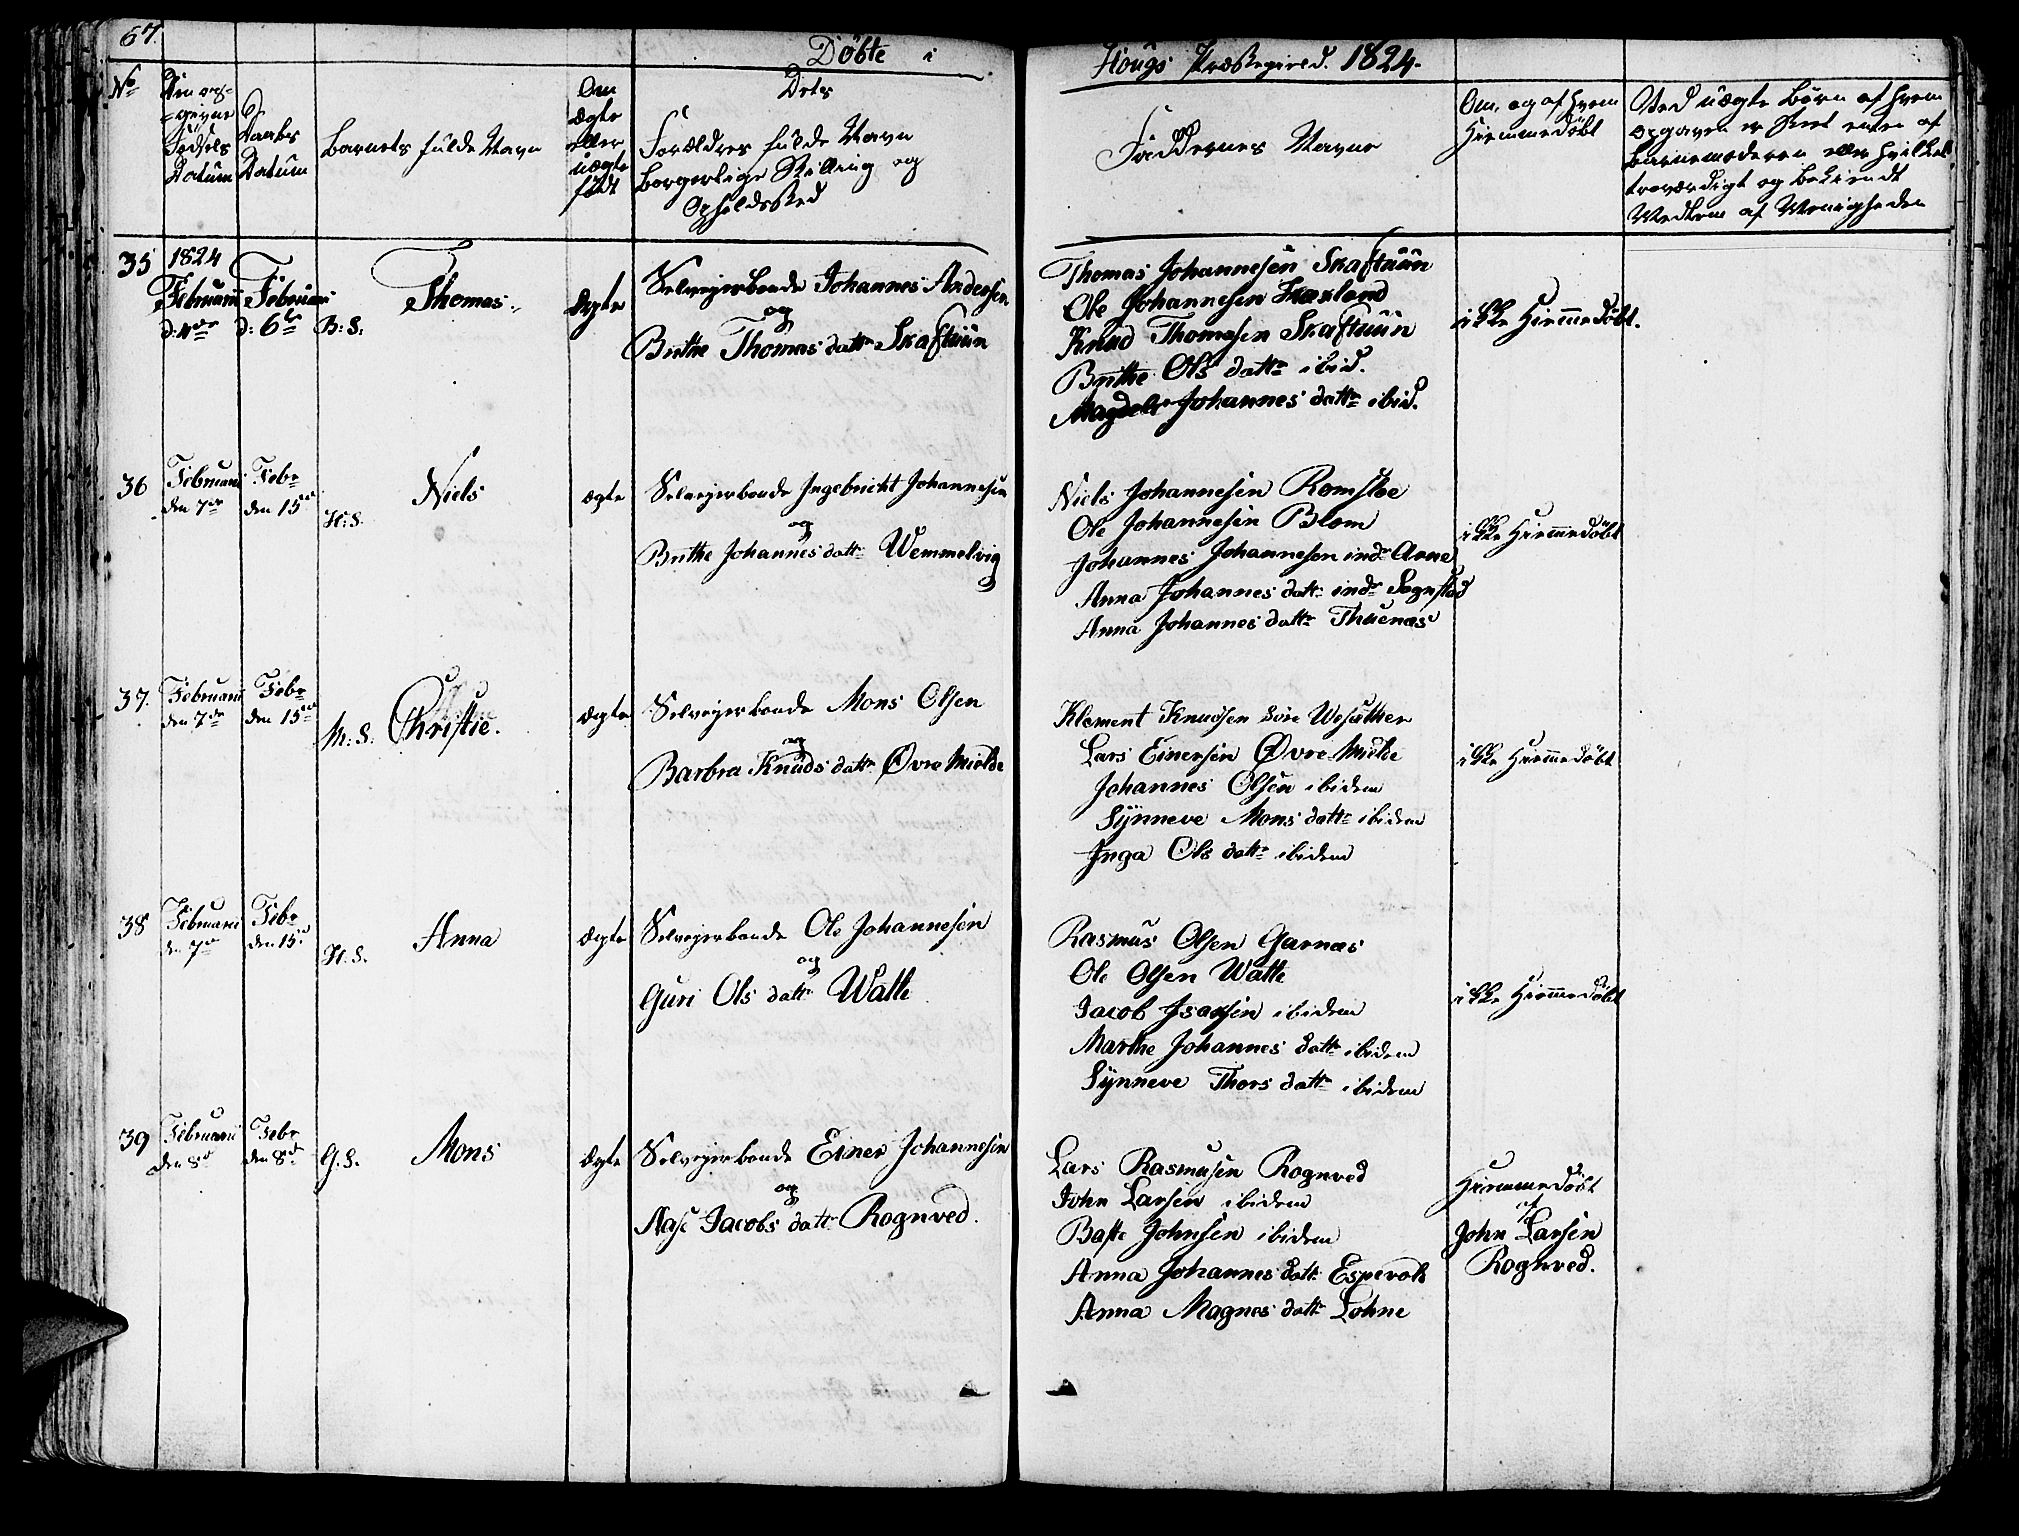 67.
Döbte i Hougs Præstegield. 1824.
No
Den op-
-givne
Födsels
Datum
Daabs
Datum
Barnets fulde Navn
Om
ægte
eller
uægte
födt
Dets
Forældres fulde Navn
borgerlige Stilling og
Opholdssted
Faddernes Navne
Om, og af hvem
Hiemmedöbt
Ved uægte Börn af hvem
opgaven er skeet enten af
Barnemoderen eller hvilket
troværdigt og bekiendt
Medlem af Menigheden
35
1824
Februarii
d: 4de
Februari
d: 6te
B: S:
Thomas
Ægte
Selvejerbonde Johannes Andersen
og
Brithe Thomas dattr Skaftuün
Thomas Johannesen Skaftuün
Ole Johannesen
Knud Thomesen Skaftuün
Brithe Ols dattr ibid.
Magdela Johannes dattr ibid.
ikke Hiemmedöbt.
36
Februarii
den 7de
Febr
den 15de
H: S.
Niels
ægte
Selvejerbonde Ingebricht Johannesen
og
Brithe Johannes dattr Wemmelvig
Niels Johannesen Romsloe
Ole Johannesen Blom
Johannes Johannesen indr Arne
Anna Johannes dattr indr Sognstad
Anna Johannes dattr Thuenæs
ikke Hiemmedöbt
37.
Februarii
den 7de
Febr
den 15de
M: S.
Christie.
ægte
Selvejerbonde Mons Olsen
og
Barbra Knuds dattr Øvre Mielde
Klement Knudsen Söre
Lars Einersen Øvre Mielde
Johannes Olsen ibidem
Synneve Mons dattr ibidem
Inga Ols dattr ibidem
ikke Hiemmedöbt
38
Februarii
d. 7de
Febr
den 15d
H. S.
Anna
ægte
Selvejerbonde Ole Johannesen
og
Guri Ols dattr Walle
Rasmus Olsen Garnæs
Ole Olsen Walle
Jacob Isaksen ibidem
Marthe Johannes dattr ibidem
Synneve Thors dattr ibidem
ikke Hiemmedöbt
39
Februarii
den 8d
Febr
den 8d
G. S.
Mons
ægte
Selvejerbonde Einer Johannesen
og
Aase Jacobs dattr Rognved.
Lars Rasmusen Rognved
John Larsen ibidem
Baste Johnsen ibidem
Anna Johannes dattr Espevold
Anna Magnes dattr Lohne
Hiemmedöbt
af
John Larsen
Rognved.